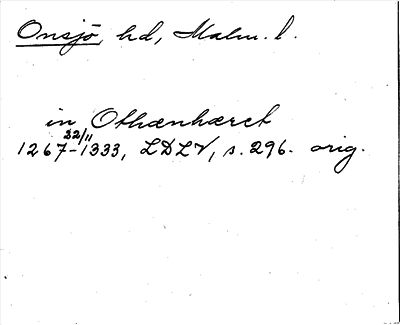 Onsjö, hd, Malm. l.
in Othænhæret
22/11
1267-1333, LDLV, s. 296. orig.